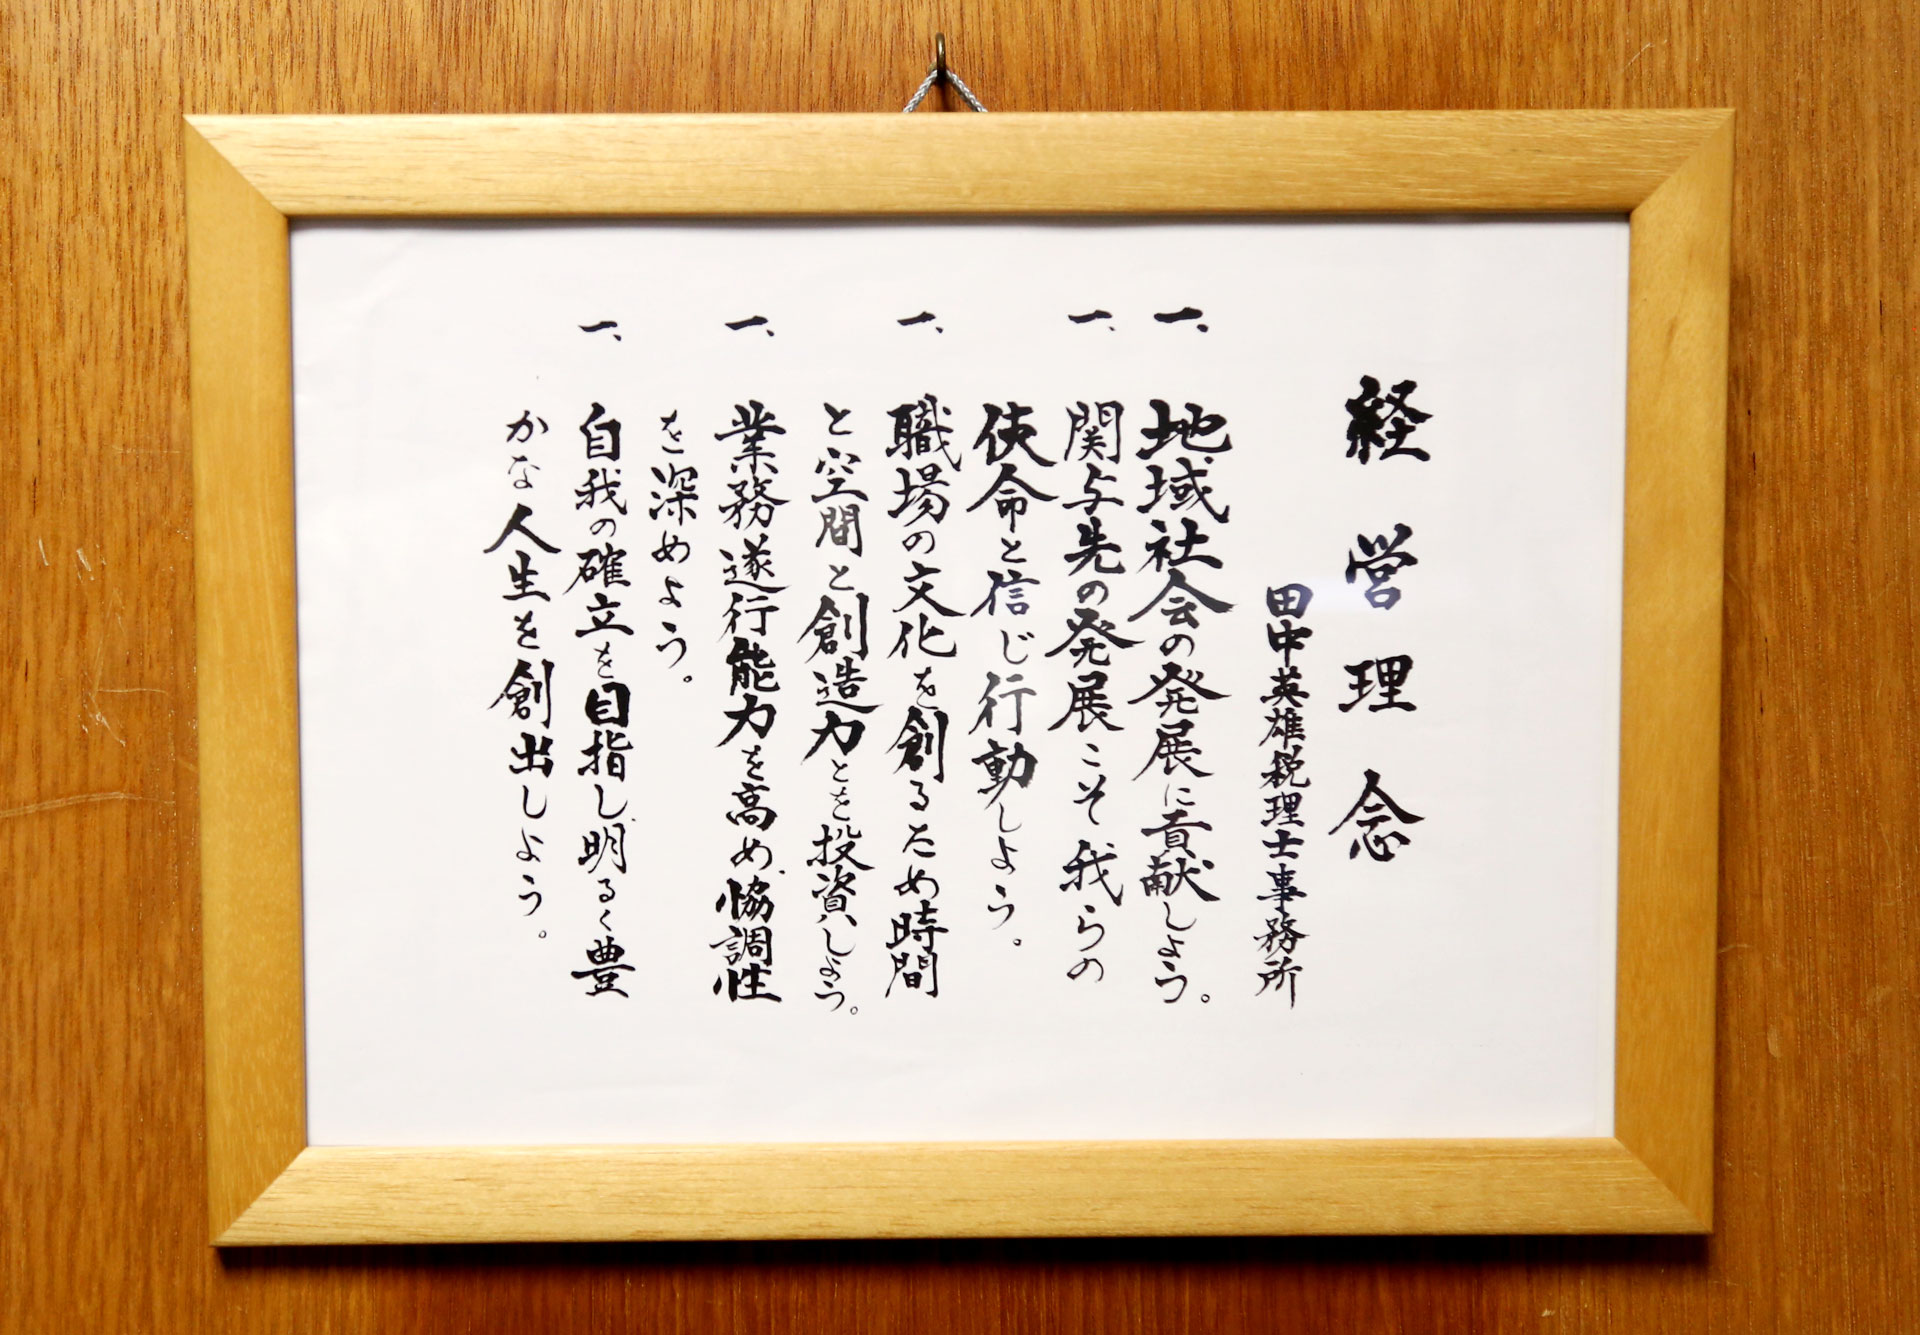 経営理念
田中英雄税理士事務所
一、地域社会の発展に貢献しよう。
一、関与先の発展こそ我らの
使命と信じ行動しよう。
一、職場の文化を創るため時間
と空間と創造力とを投資しよう。
一、業務遂行能力を高め協調性
を深めよう。
一、自我の確立を目指し明るく豊
かな人生を創出しよう。